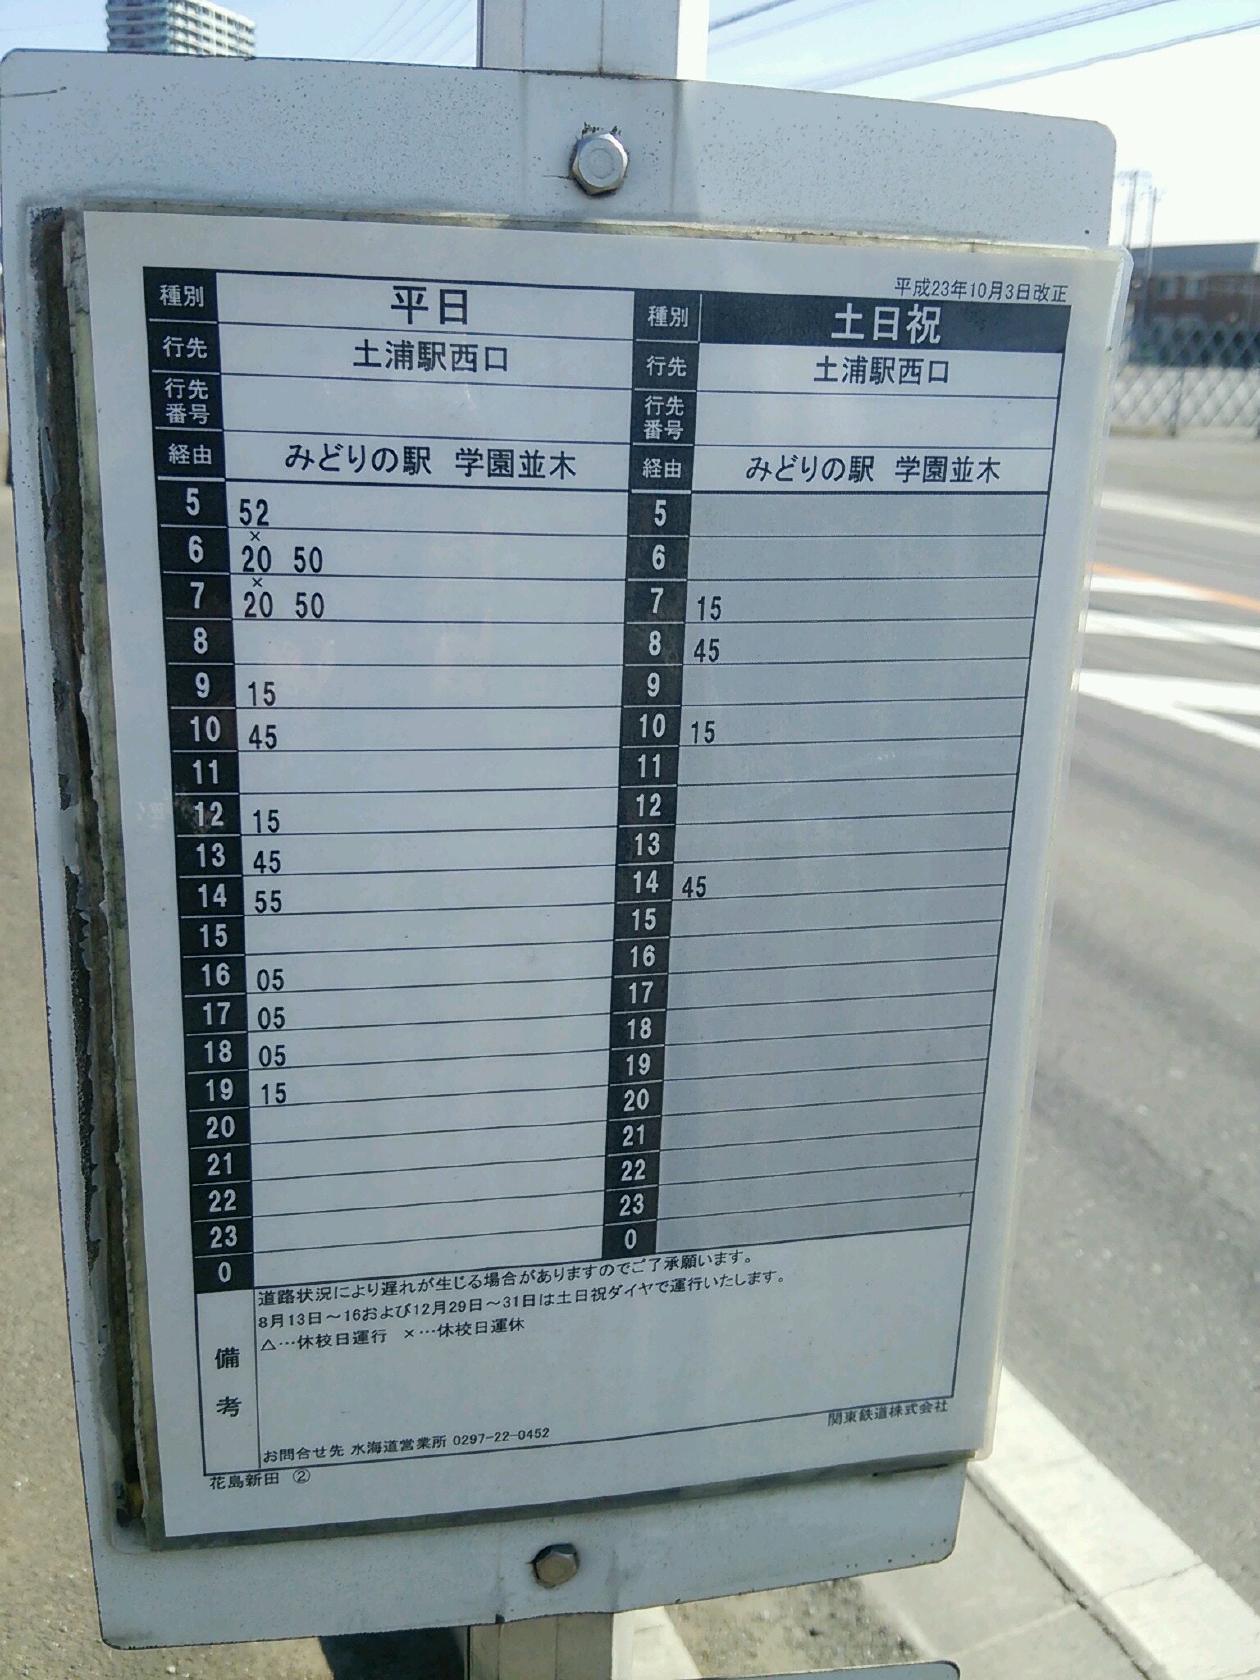 平成23年10月3日改正
種別 平日
行先 土浦駅西口
行先
番号
経由 みどりの駅 学園並木
5 52
×
6 20 50
×
7 20 50
8
9 15
10 45
11
12 15
13 45
14 55
15
16 05
17 05
18 05
19 15
20
21
22
23
0
種別 土日祝
行先 土浦駅西口
行先
番号
経由 みどりの駅 学園並木
5
6
7 15
8 45
9
10 15
11
12
13
14 45
15
16
17
18
19
20
21
22
23
0
備考
道路状況により遅れが生じる場合がありますのでご了承願います。
8月13日～16および12月29日～31日は土日祝ダイヤで運行いたします。
△…休校日運行 ×…休校日運休
お問合せ先 水海道営業所 0297-22-0452
関東鉄道株式会社
花島新田 ②